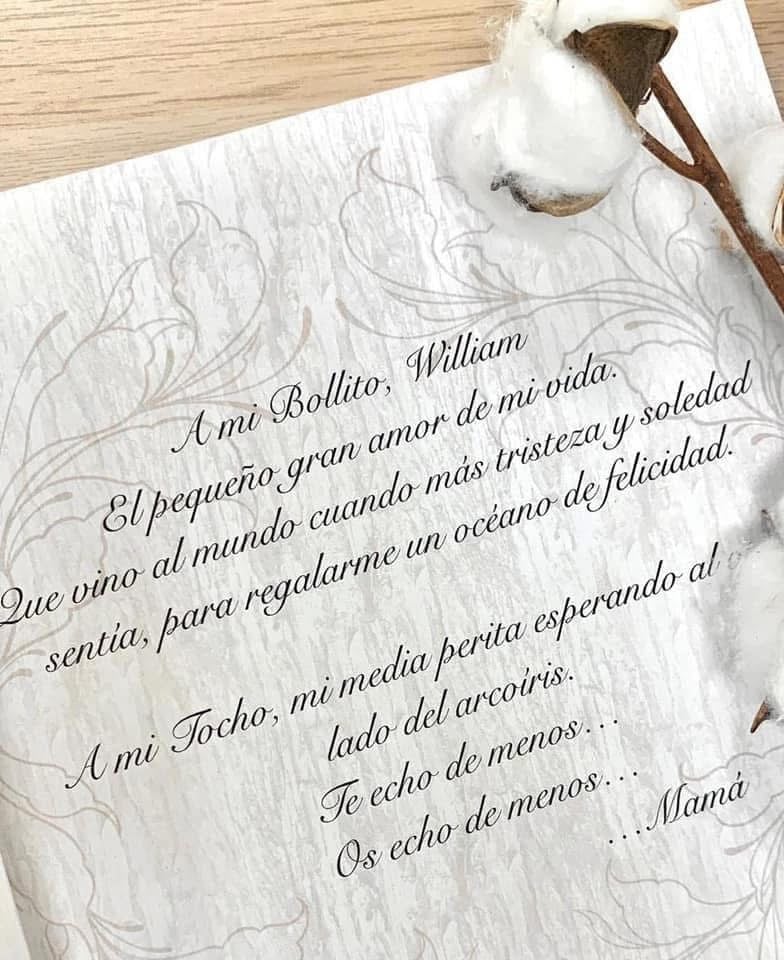 A mi Bollito, William
El pequeño gran amor de mi vida.
Que vino al mundo cuando más tristeza y soledad
sentía, para regalarme un océano de felicidad.
A mi Tocho, mi media perita esperando al
lado del arcoíris.
Te echo de menos...
Os echo de menos...
...Mamá